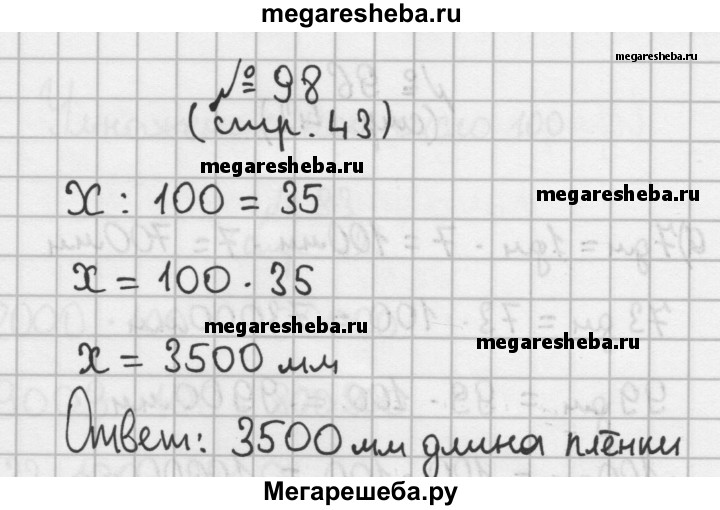 megaresheba.ru
megaresheba.ru
№ 98
(стр. 43)
megaresheba.ru
megaresheba.ru
х : 100 = 35
х = 100 · 35
megaresheba.ru
megaresheba.ru
х = 3500 мм
Ответ: 3500 мм длина плёнки
Мегарешеба.ру